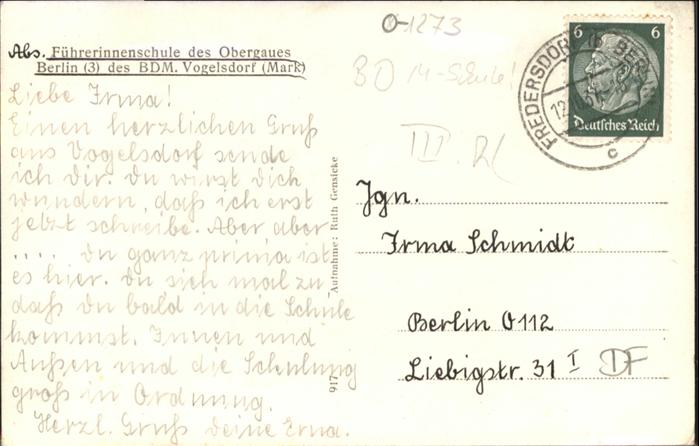 0-1273
BDM-Schule!
III. Rl
Abs. Führerinnenschule des Obergaues
Berlin (3) des BDM. Vogelsdorf (Mark)
Liebe Irma!
Einen herzlichen Gruß
aus Vogelsdorf sende
ich Dir. Du wirst Dich
wundern, daß ich erst
jetzt schreibe. Aber aber
..... Du ganz prima ist
es hier. Du sieh mal zu
daß Du bald in die Schule
kommst. Innen und
Außen und die Schulung
groß in Ordnung.
Herzl. Gruß Deine Erna.
917 Aufnahme: Ruth Gensicke
6 6
Deutsches Reich
FREDERSDORF (b BERLIN)
12.
c
Jgn.
Irma Schmidt
Berlin O 112
Liebigstr. 31 I
DF